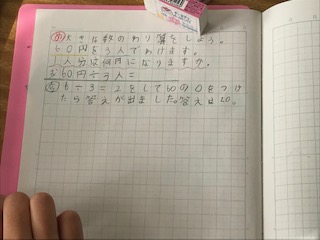 め 大きな数のわり算をしよう。
60円を3人でわけます。
1人分は何円になりますか。
60円÷3人=
6÷3=2をして60の0をつけ
たら答えが出ました。答えは20。